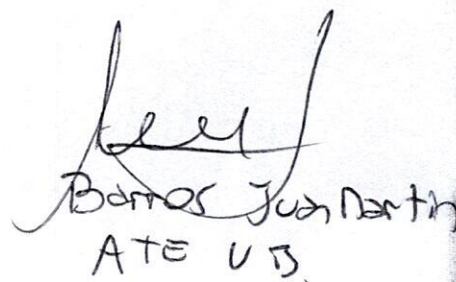 Barros Juan Martin
ATE UB